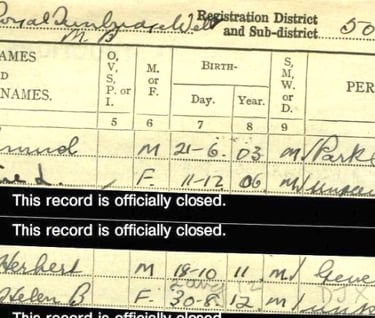 Royal Tunbridge Wells Registration District
M B and Sub-district 50
AMES
D
NAMES.
O, V, S, P. or I.
M. or F.
BIRTH-
Day. Year.
S, M, W, or D.
PER
5 6 7 8 9
M 21-6. 03 M Park
F. 11-12 06 M
This record is officially closed.
This record is officially closed.
Herbert M 18-10 11 M
Helen B F. 30-8 12 M
This record is officially closed.